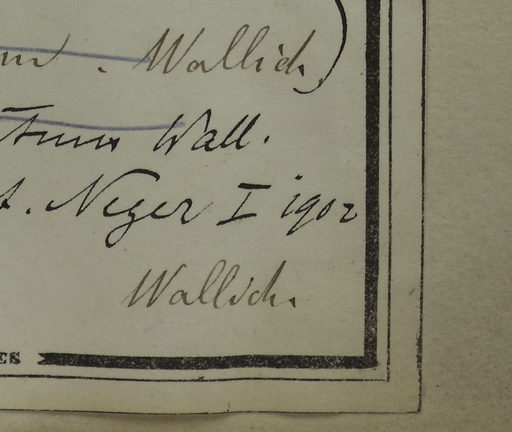 . Wallich)
Wall.
t. Neger I 1902
Wallich.
ES